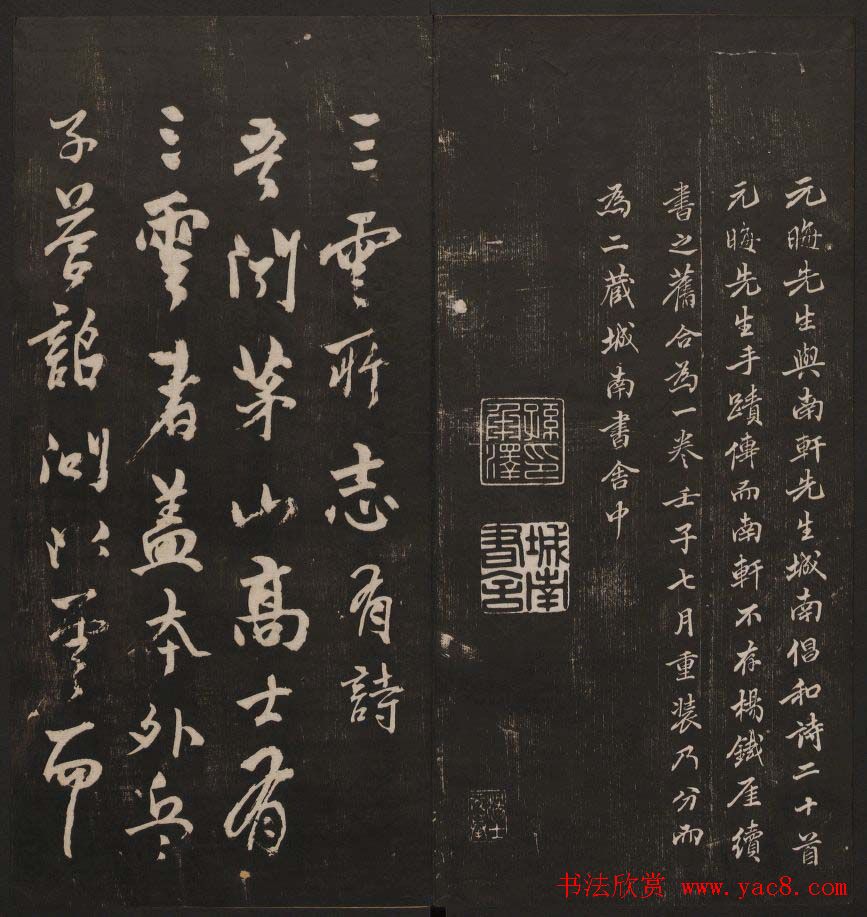 元晦先生與南軒先生城南倡和詩二十首
元晦先生手蹟傳而南軒不存楊鐵厓續
書之舊合為一卷壬子七月重裝乃分而
為二藏城南書舍中
孫承澤印
城南書舍
三雲所志有詩
吾聞茅山高士有
三雲者蓋本外兵
子夢詔湖以夢而
书法欣赏 www.yac8.com